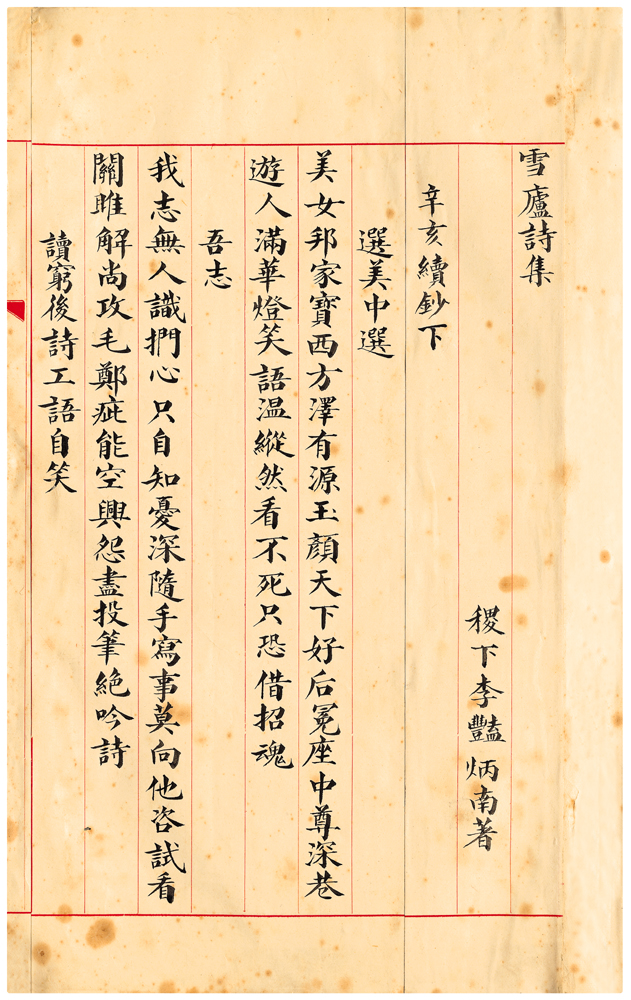 雪廬詩集
稷下李豔炳南著
辛亥續鈔下
選美中選
美女邦家寶西方澤有源玉顏天下好后冕座中尊深巷
遊人滿華燈笑語温縱然看不死只恐借招魂
吾志
我志無人識捫心只自知憂深隨手寫事莫向他咨試看
關雎解尚攻毛鄭疵能空興怨盡投筆絕吟詩
讀窮後詩工語自笑